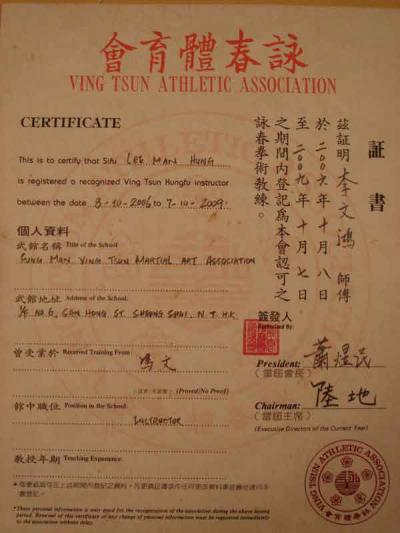 會育體春詠
VING TSUN ATHLETIC ASSOCIATION
CERTIFICATE
This is to certify that Sifu LEE MAN HUNG
is registered a recognized Ving Tsun Kungfu instructor
between the date 8-10-2006 to 7-10-2009.
証書
茲証明李文鴻師傅
於二〇〇六年十月八日
至二〇〇九年十月七日
之期間內登記為本會認可之
詠春拳術教練。
個人資料
武館名稱 Title of the School
FUNG MAN VING TSUN MARTIAL ART ASSOCIATION
武館地址 Address of the School:
1/F NO.6, SAN HONG ST. SHEUNG SHUI, N.T. H.K.
曾受業於 Received Training From:
馮文
(Proved/No Proof)
館中職位 Position in the School:
INSTRUCTOR
教授年期 Teaching Experience:
簽發人
Authorized By:
President:
(當屆會長)
Chairman: 陸地
(當屆主席)
(Executive Directors of the Current Year)
* These personal information is only good for the recognization of the association during the above issued
period. Renewal of the certificate or any change of personal information must be requested immediately
to the association without delay.
VING TSUN ATHLETIC ASSOCIATION
會育體春詠